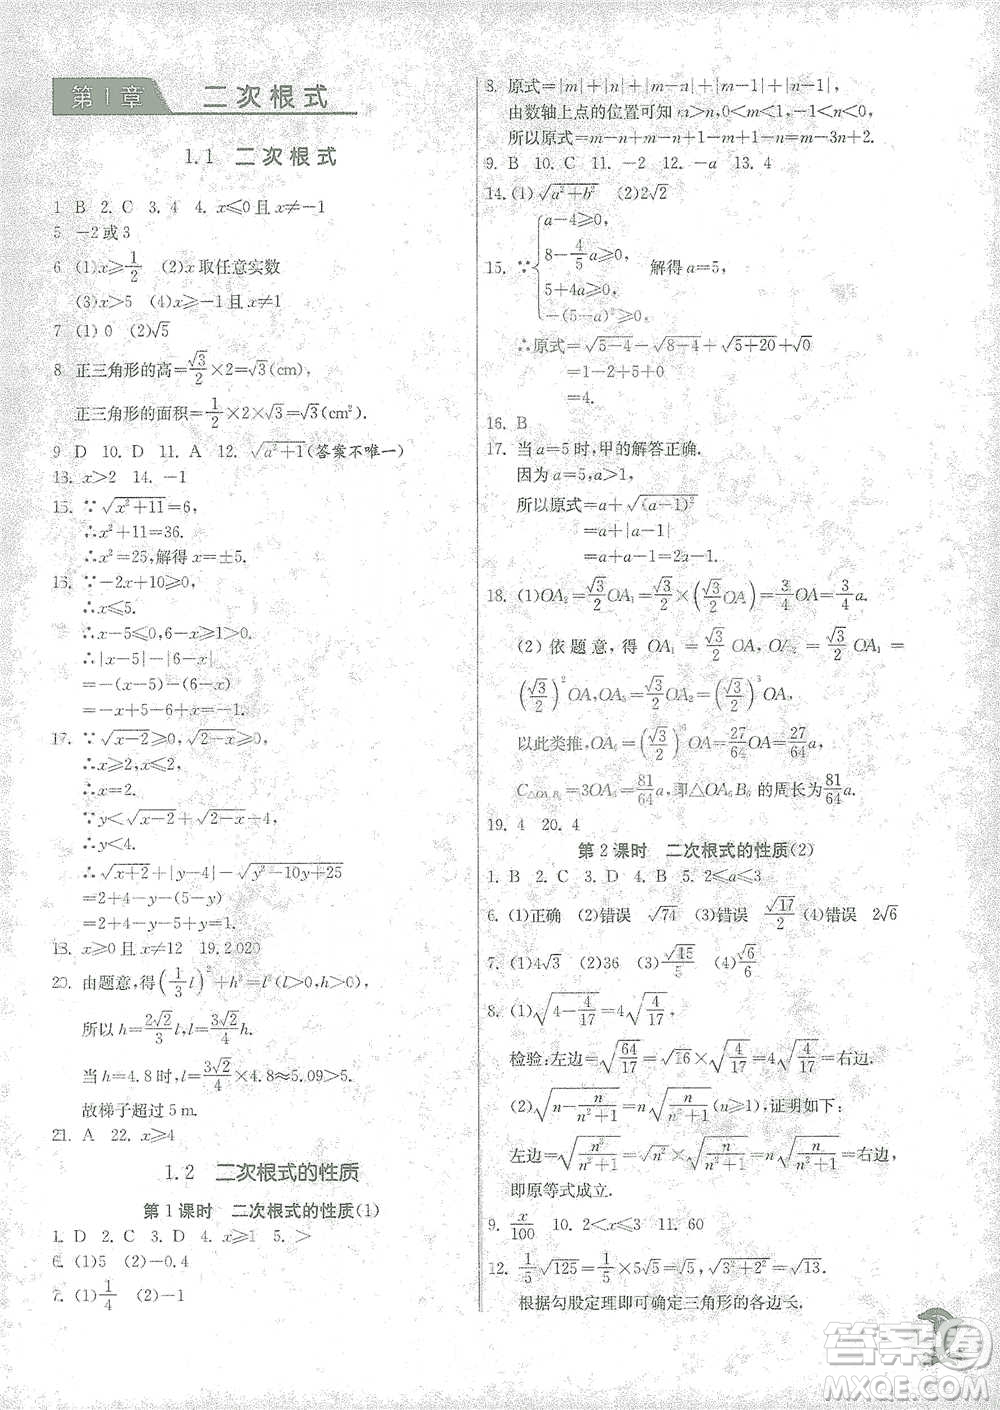 第1章 二次根式
1.1 二次根式
1 B 2. C 3. 4 4. x⩽0且x≠-1
5 -2或3
6 (1)x⩾1/2 (2)x取任意实数
(3)x>5 (4)x⩾-1且x≠1
7 (1)0 (2)√5
8 正三角形的高=√3/2×2=√3(cm),
正三角形的面积=1/2×2×√3=√3(cm²).
9 D 10. D 11. A 12. √(a²+1)(答案不唯一)
13. x>2 14. -1
15. ∵√(x²+11)=6,
∴x²+11=36.
∴x²=25,解得x=±5.
16. ∵-2x+10⩾0,
∴x⩽5.
∴x-5⩽0,6-x⩾1>0.
∴|x-5|-|6-x|
=-(x-5)-(6-x)
=-x+5-6+x=-1.
17. ∵√(x-2)⩾0,√(2-x)⩾0,
∴x⩾2,x⩽2.
∴x=2.
∵y<√(x-2)+√(2-x)+4,
∴y<4.
∴√(x+2)+|y-4|-√(y²-10y+25)
=2+4-y-(5-y)
=2+4-y-5+y=1.
18. x⩾0且x≠12 19. 2 020
20. 由题意,得(1/3 l)²+h²=l²(l>0,h>0),
所以h=2√2/3 l,l=3√2/4 h.
当h=4.8时,l=3√2/4×4.8≈5.09>5.
故梯子超过5 m.
21. A 22. x⩾4
1.2 二次根式的性质
第1课时 二次根式的性质(1)
1. D 2. C 3. D 4. x⩾1 5. >
6. (1)5 (2)-0.4
7. (1)1/4 (2)-1
8. 原式=|m|+|n|+|m-n|+|n-1|-|m-1|.
由数轴上点的位置可知m>n,0<m<1,-1<n<0,
所以原式=m-n+m-n+1-n-1+m=m-3n+2.
9. B 10. C 11. -2 12. -a 13. 4
14. (1)√(a²+b²) (2)2√2
15. ∵{a-4⩾0, 8-4/5a⩾0, 5+4a⩾0, -(5-a)²⩾0, 解得a=5,
∴原式=√(5-4)-√(8-4)+√(5+20)+√0
=1-2+5
=4.
16. B
17. 当a=5时,甲的解答正确.
因为a=5,
所以原式=a+√((a-1)²)
=a+|a-1|
=a+a-1=2a-1.
18. (1)OA₂=√3/2 OA₁=√3/2×(√3/2 OA)=3/4 OA=3/4 a.
(2)依题意,得OA₁=√3/2 OA,OA₂=√3/2 OA₁=
(√3/2)²OA,OA₃=√3/2 OA₂=(√3/2)³OA,
以此类推,OA₆=(√3/2)⁶OA=27/64 OA=27/64 a,
C△OA₆B₆=3OA₆=81/64 a,即△OA₆B₆的周长为81/64 a.
19. 4 20. 4
第2课时 二次根式的性质(2)
1. B 2. C 3. D 4. B 5. 2⩽a⩽3
6. (1)正确 (2)错误 √74 (3)错误 √17/2 (4)错误 2√6
7. (1)4√3 (2)36 (3)√15/5 (4)√6/6
8. (1)√(4-4/17)=4√(4/17),
检验:左边=√(64/17)=√16×√(4/17)=4√(4/17)=右边.
(2)√(n-n/(n²+1))=n√(n/(n²+1))(n⩾1),证明如下:
左边=√(n³/(n²+1))=√n²×√(n/(n²+1))=n√(n/(n²+1))=右边,
即原等式成立.
9. x/100 10. 2<x⩽3 11. 60
12. 1/5√125=1/5×5√5=√5,√(2²+3²)=√13.
根据勾股定理即可确定三角形的各边长.
答案圈
MXQE.COM